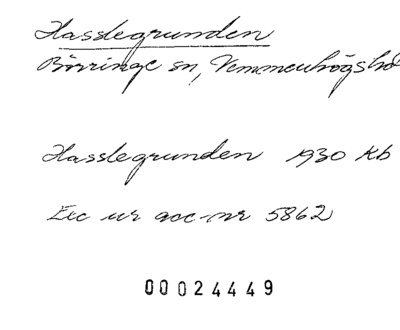 Hasslegrunden
Börringe sn, Vemmenhögs hd
Hasslegrunden 1930 Kb
Exc ur acc-nr 5862
00024449